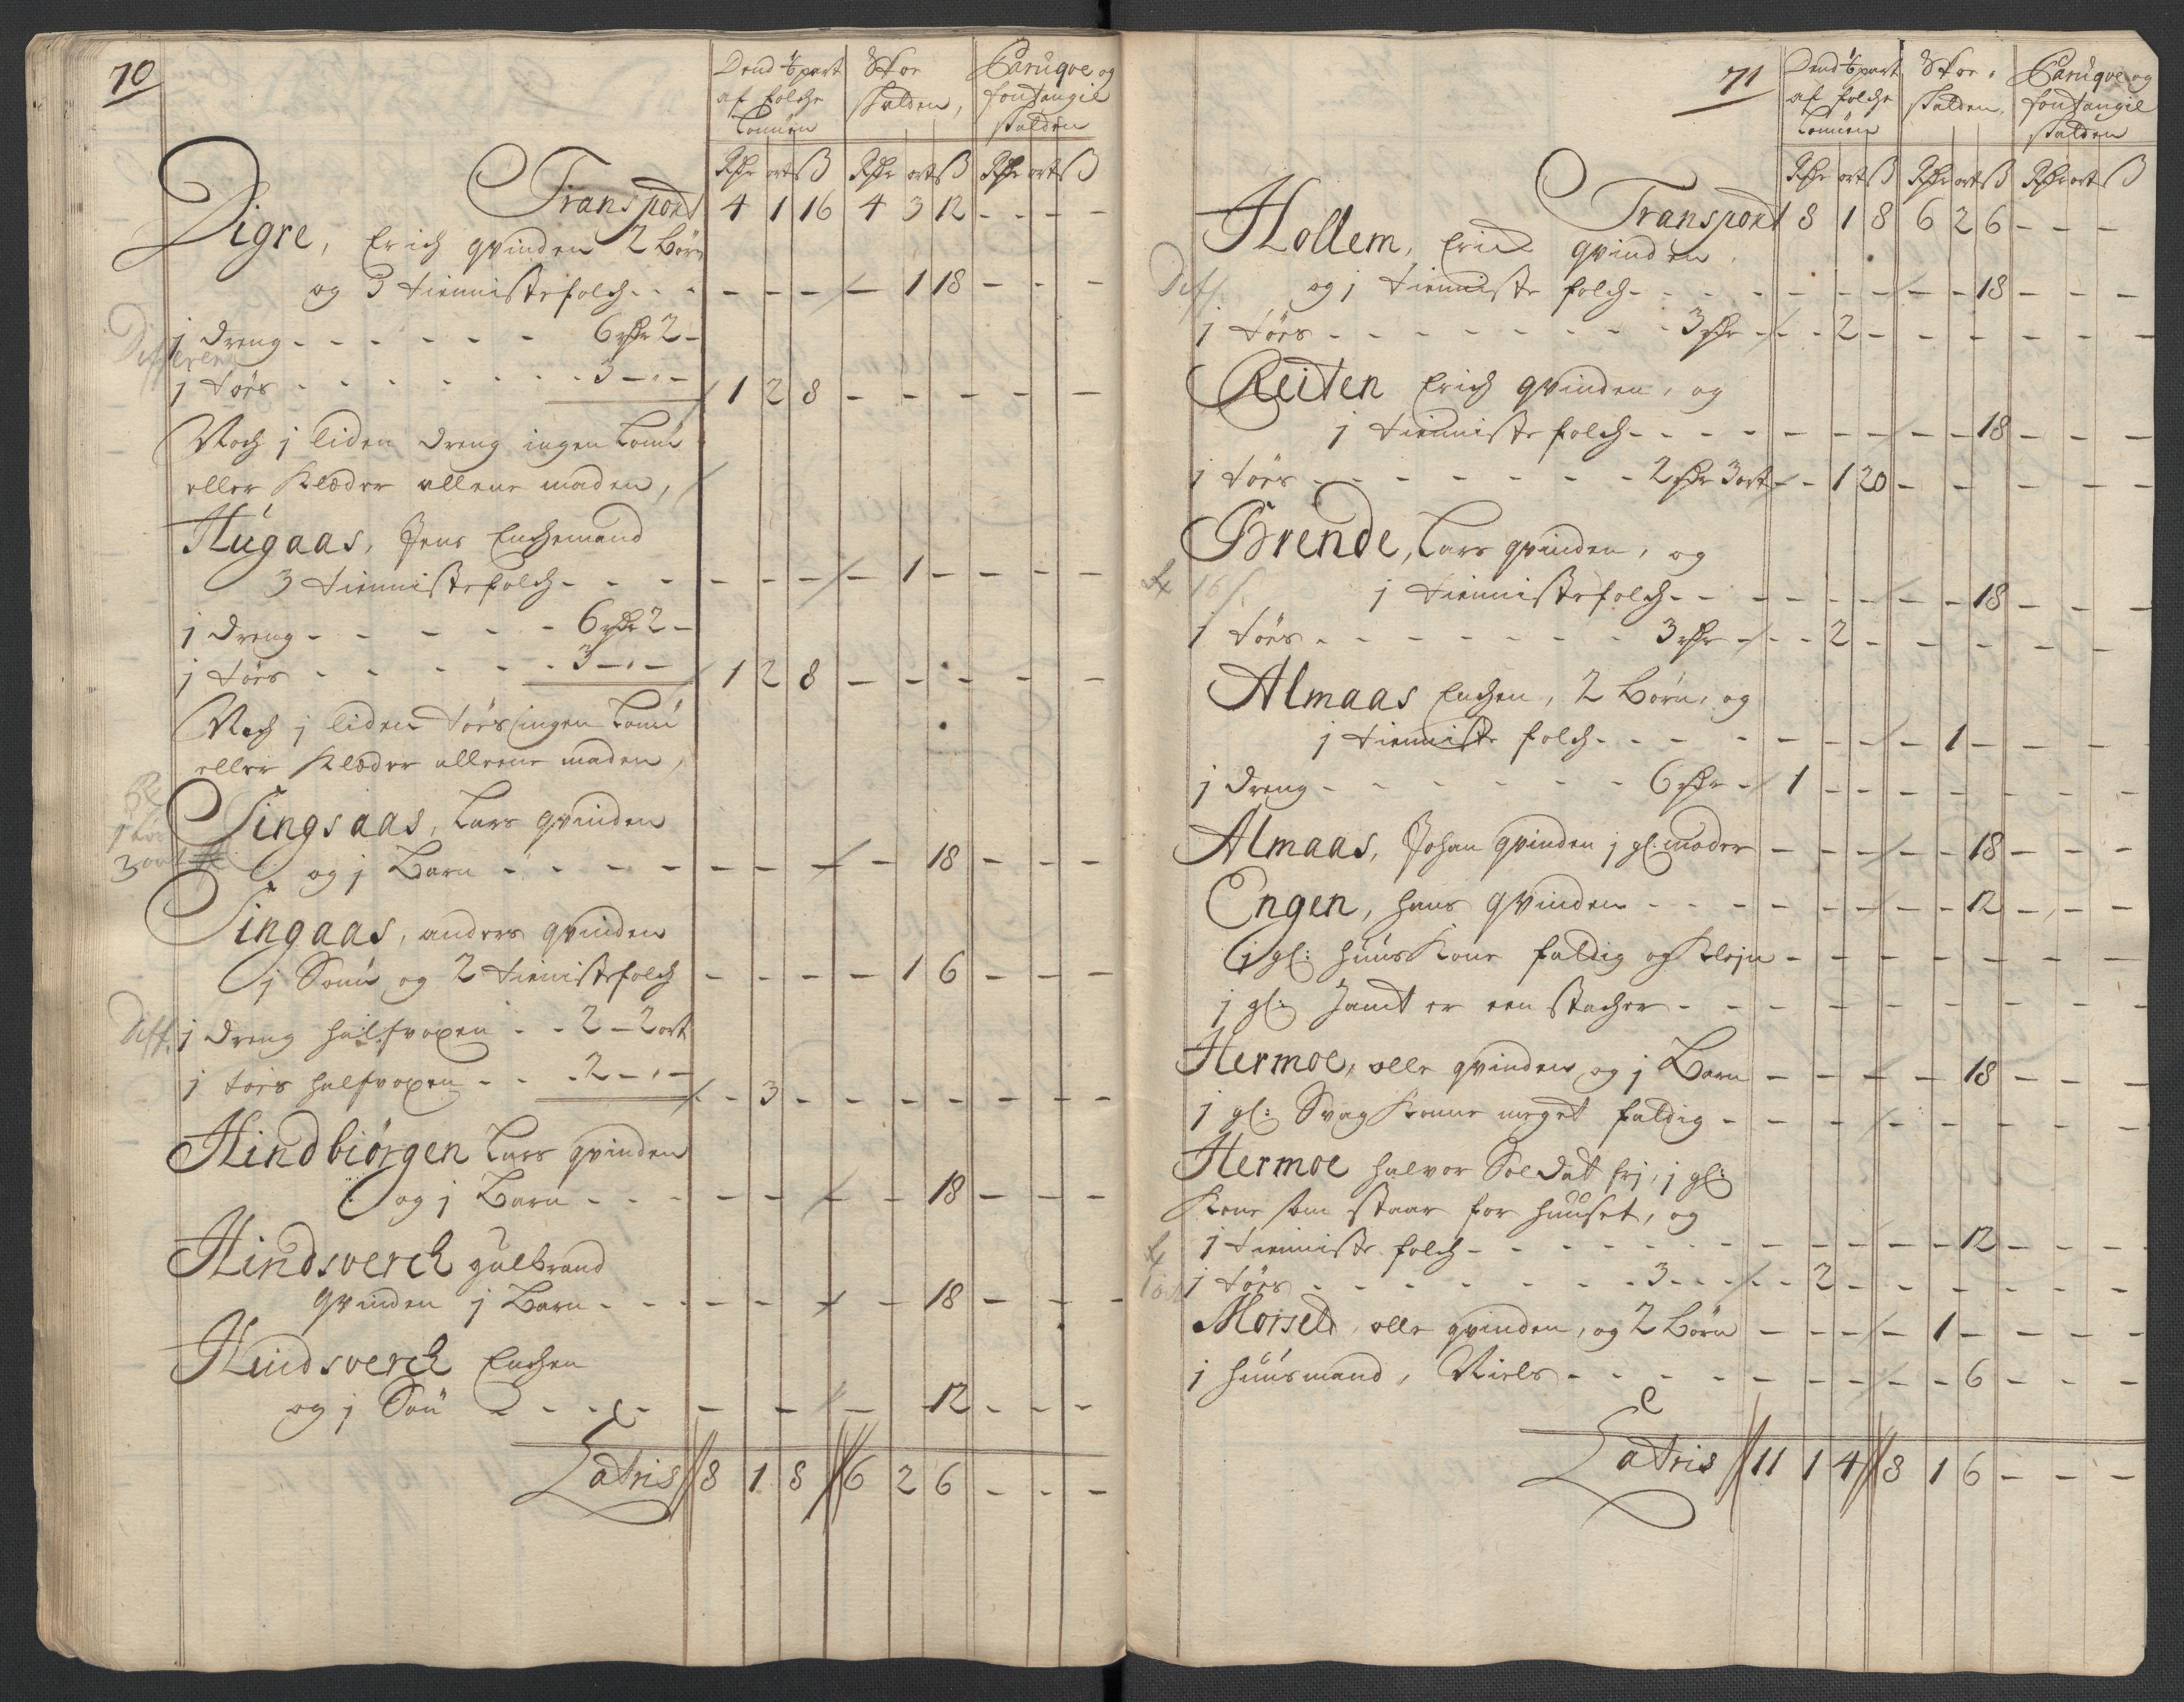 70
Dend 1/6 part af folche Lønnen | Skoe skatten, | Paruqve og fontangie skatten
Rdr ort ß | Rdr ort ß | Rdr ort ß
Transport 4 1 16 4 3 12 - - - -
Digre, Erich qvinden 2 Børn
og 3 tiennistefolch - - - - - - - 1 18 - - -
Differenz
1 dreng - - - - - - 6 rdr 2 -
1 tøes - - - - - - - 3 - " - 1 2 8 - - - - - -
Noch 1 liden dreng ingen Lønn
eller Klæder allene maden,
Hugaas, Jens Enchemand
3 tiennistefolch - - - - - - - 1 - - - -
1 dreng - - - - - - 6 rdr 2 -
1 tøes - - - - - - 3 - " - 1 2 8 - - - - - -
Noch 1 liden tøes ingen Lønn
eller Klæder alleene maden,
Singsaas, Lars qvinden
3 ort
og 1 Barn - - - - - - - - - 18 - - -
Singaas, anders qvinden
1 Sønn og 2 tienistefolch - - - - 1 6 - - -
Diff. 1 dreng halfvoxen - - 2 - 2 ort
1 tøes halfvoxen - - - 2 - " - - 3 - - - - - - -
Hindbiørgen Lars qvinden
og 1 Barn - - - - - - - 18 - - -
Hindsverch gulbrand
qvinden 1 Barn - - - - - - - 18 - - -
Hindsverch Enchen
og 1 Søn - - - - - - - 12 - - -
Latris 8 1 8 6 2 6 - - -
71
Dend 1/6 part af folche Lønnen | Skoe skatten, | Paruqve og fontangie skatten
Rdr ort ß | Rdr ort ß | Rdr ort ß
Transport 8 1 8 6 2 6 - - -
Hollem, Erich qvinden,
Diff.
og 1 tienniste folch - - - - - - - - 18 - - -
1 tøes - - - - - - - - 3 rdr - - 2 - - - - - - -
Reiten Erich qvinden, og
1 tienniste folch - - - - - - - - 18 - - -
1 tøes - - - - - - - 2 rdr 3 ort - 1 20 - - - - - -
Brende, Lars qvinden, og
16 ß
1 tiennistefolch - - - - - - - - 18 - - -
1 tøes - - - - - - - 3 rdr - - 2 - - - - - - -
Almaas Enchen, 2 Børn, og
1 tienniste folch - - - - - - - 1 - - - -
1 dreng - - - - - - - 6 rdr - 1 - - - - - - - -
Almaas, Johan qvinden 1 gl: moder - - - - - 18 - - -
Engen, hans qvinden - - - - - - - - 12 - - -
1 gl: huus Kone fattig og Kleju - - - - - - -
1 gl: Jamt er een stacher - - - - - - - - -
Hermoe, olle qvinden og 1 Barn - - - - 18 - - -
1 gl: Svag Konne meget fattig - - - - - - - -
Hermoe halvor Soldat frj, 1 gl:
Kone som staar for huuset, og
1 tienniste folch - - - - - - - - - 12 - - -
1 tøes - - - - - - - 3 - - - - 2 - - - - - - -
Morseld, olle qvinden, og 2 Børn - - - - 1 - - - -
1 huusmand, Niels - - - - - - - - 6 - - -
Latris 11 1 4 8 1 6 - - -